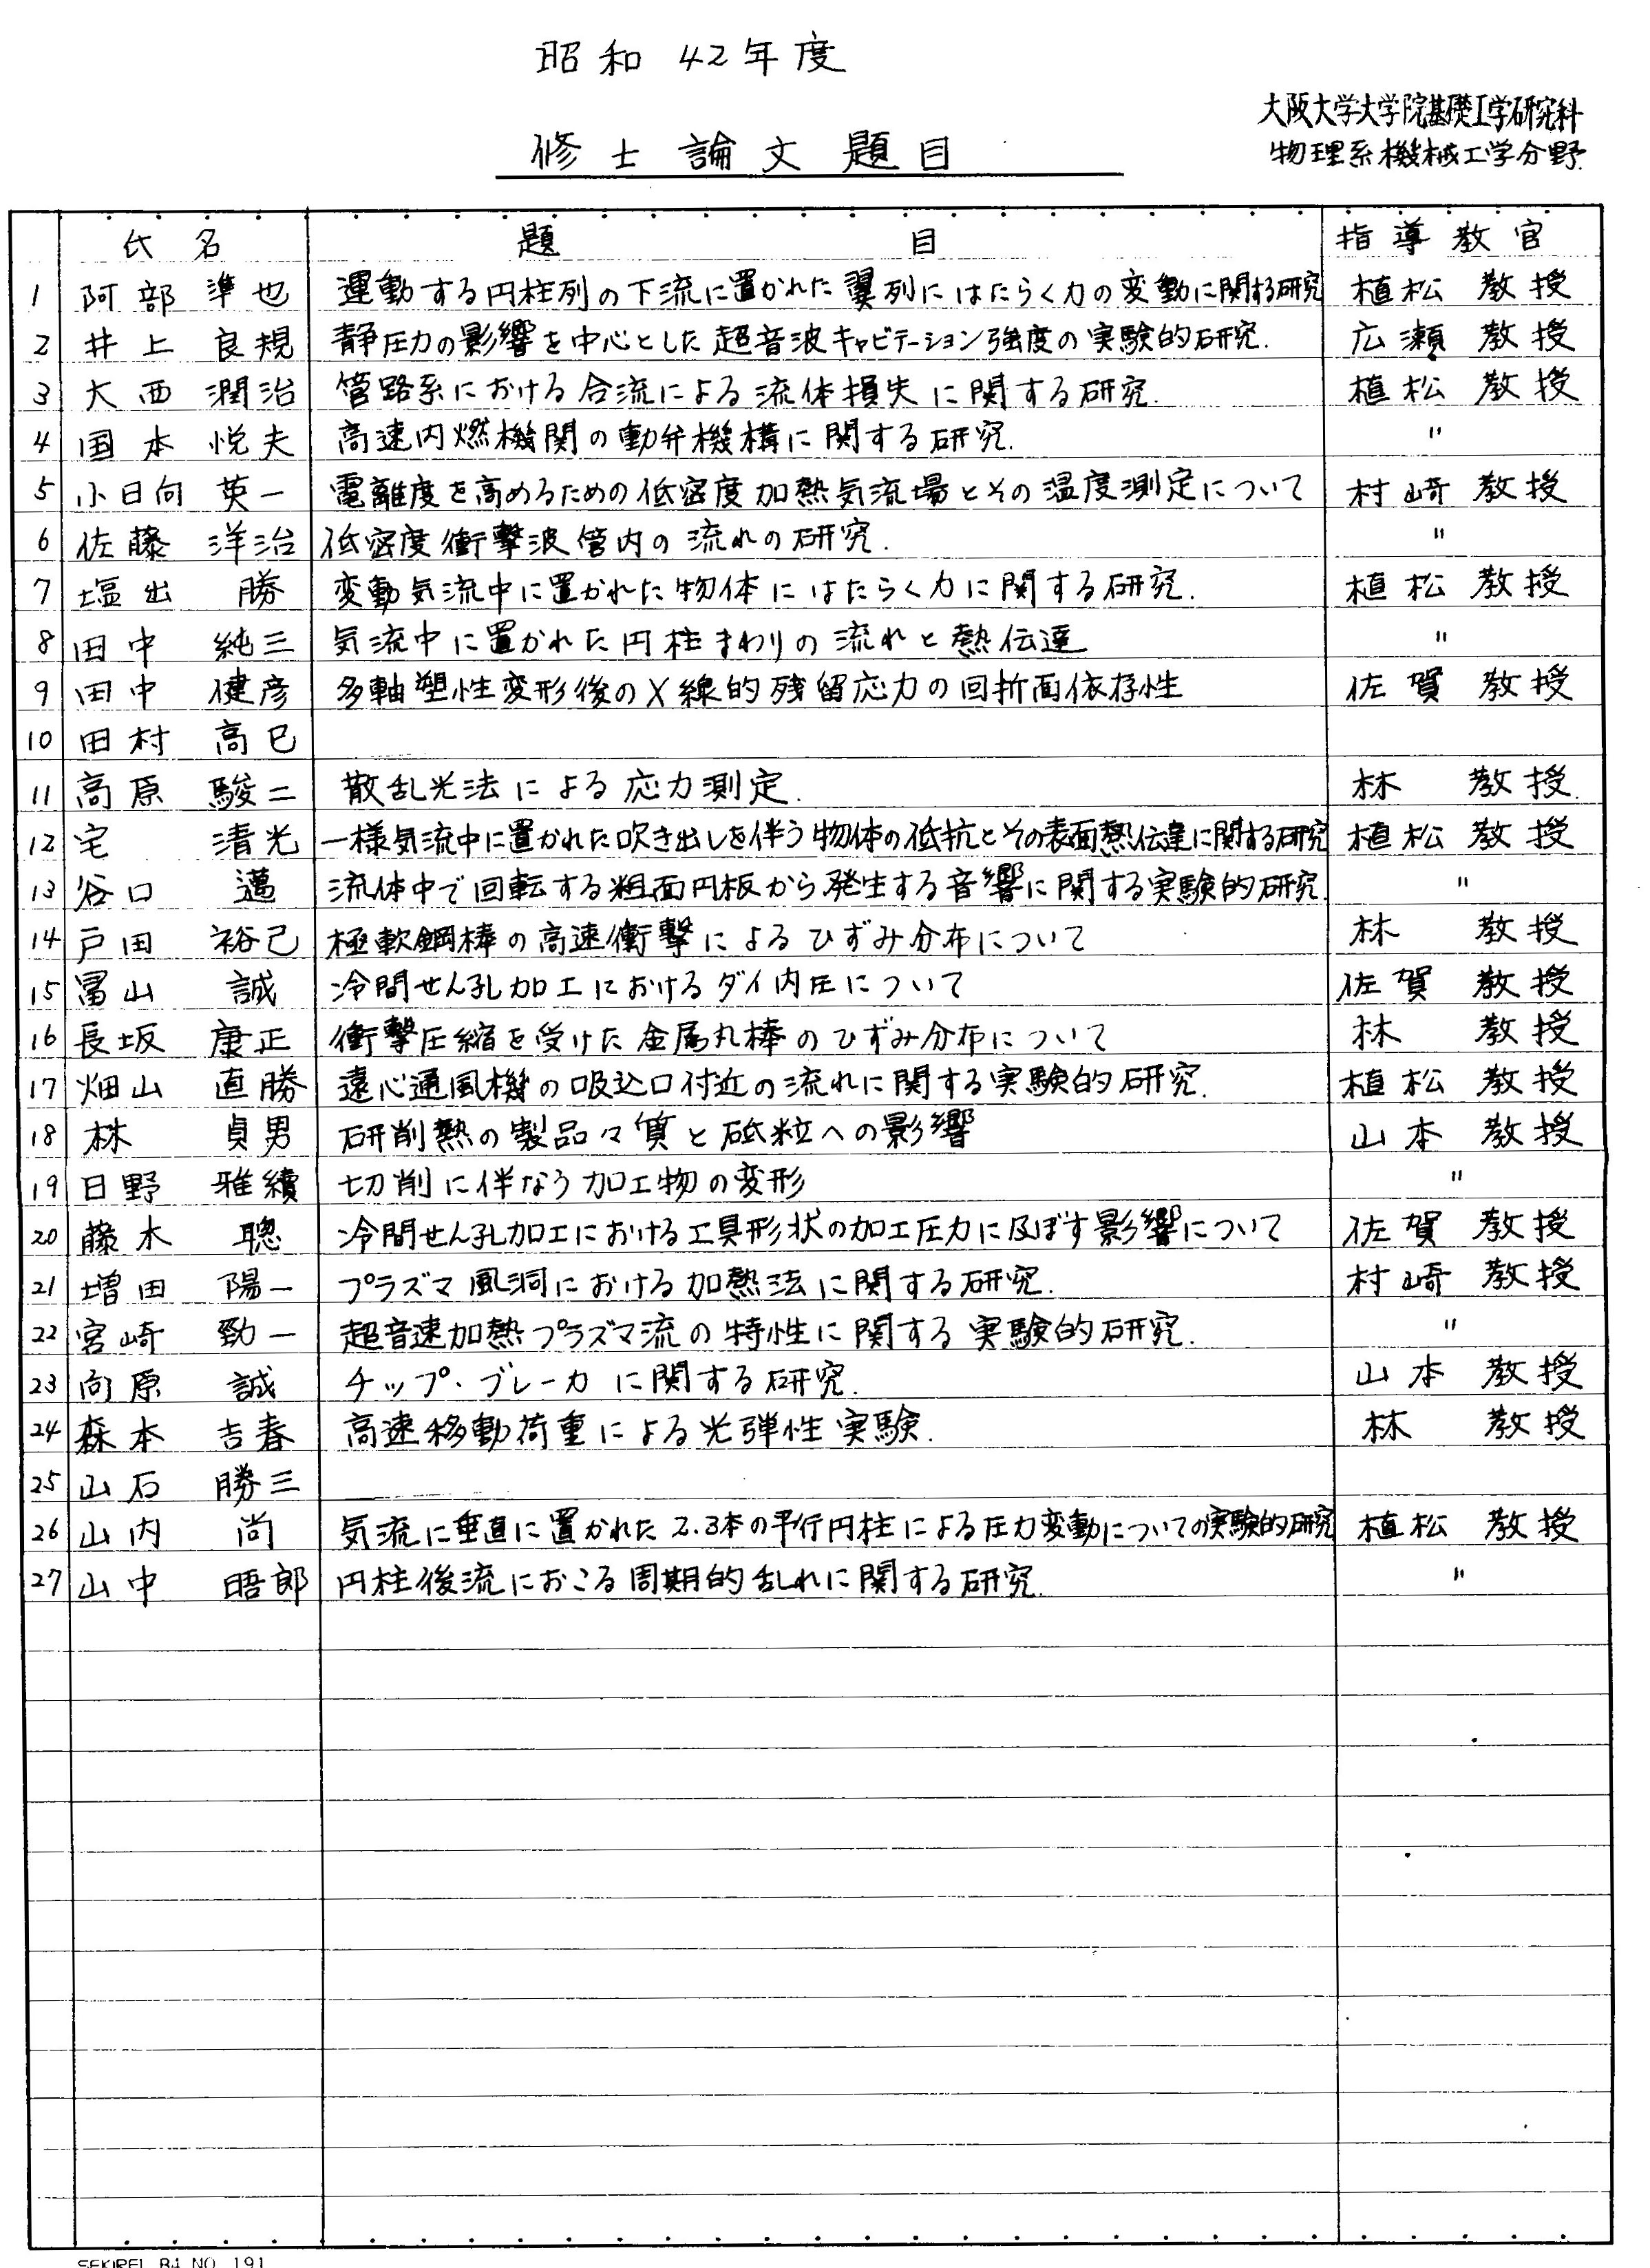 昭和 42年度
大阪大学大学院基礎工学研究科
修士論文題目
物理系機械工学分野.
氏名 題目 指導教官
1 阿部 準也 運動する円柱列の下流に置かれた翼列にはたらく力の変動に関する研究 植松 教授
2 井上 良規 静圧力の影響を中心とした超音波キャビテーション強度の実験的研究. 広瀬 教授
3 大西 潤治 管路系における合流による流体損失に関する研究. 植松 教授
4 国本 悦夫 高速内燃機関の動弁機構に関する研究. 〃
5 小日向 英一 電離度を高めるための低密度加熱気流場とその温度測定について 村崎 教授
6 佐藤 洋治 低密度衝撃波管内の流れの研究. 〃
7 塩出 勝 変動気流中に置かれた物体にはたらく力に関する研究. 植松 教授
8 田中 純三 気流中に置かれた円柱まわりの流れと熱伝達 〃
9 田中 健彦 多軸塑性変形後のX線的残留応力の回折面依存性 佐賀 教授
10 田村 高巳
11 高原 駿二 散乱光法による応力測定. 林 教授.
12 宅 清光 一様気流中に置かれた吹き出しを伴う物体の低抗とその表面熱伝達に関する研究 植松 教授
13 谷口 邁 流体中で回転する粗面円板から発生する音響に関する実験的研究. 〃
14 戸田 裕己 極軟鋼棒の高速衝撃によるひずみ分布について 林 教授
15 冨山 誠 冷間せん孔加工におけるダイ内圧について 佐賀 教授
16 長坂 康正 衝撃圧縮を受けた金属丸棒のひずみ分布について 林 教授
17 畑山 直勝 遠心通風機の吸込口付近の流れに関する実験的研究. 植松 教授
18 林 貞男 研削熱の製品々質と砥粒への影響 山本 教授
19 日野 雅續 切削に伴なう加工物の変形 〃
20 藤木 聰 冷間せん孔加工における工具形状の加工圧力に及ぼす影響について 佐賀 教授
21 増田 陽一 プラズマ風洞における加熱法に関する研究. 村崎 教授
22 宮崎 勁一 超音速加熱プラズマ流の特性に関する実験的研究. 〃
23 向原 誠 チップ・ブレーカに関する研究. 山本 教授
24 森本 吉春 高速移動荷重による光弾性実験. 林 教授
25 山石 勝三
26 山内 尚 気流に垂直に置かれた2.3本の平行円柱による圧力変動についての実験的研究 植松 教授
27 山中 晤郎 円柱後流におこる周期的乱れに関する研究. 〃
SEKIREI B4 NO. 191